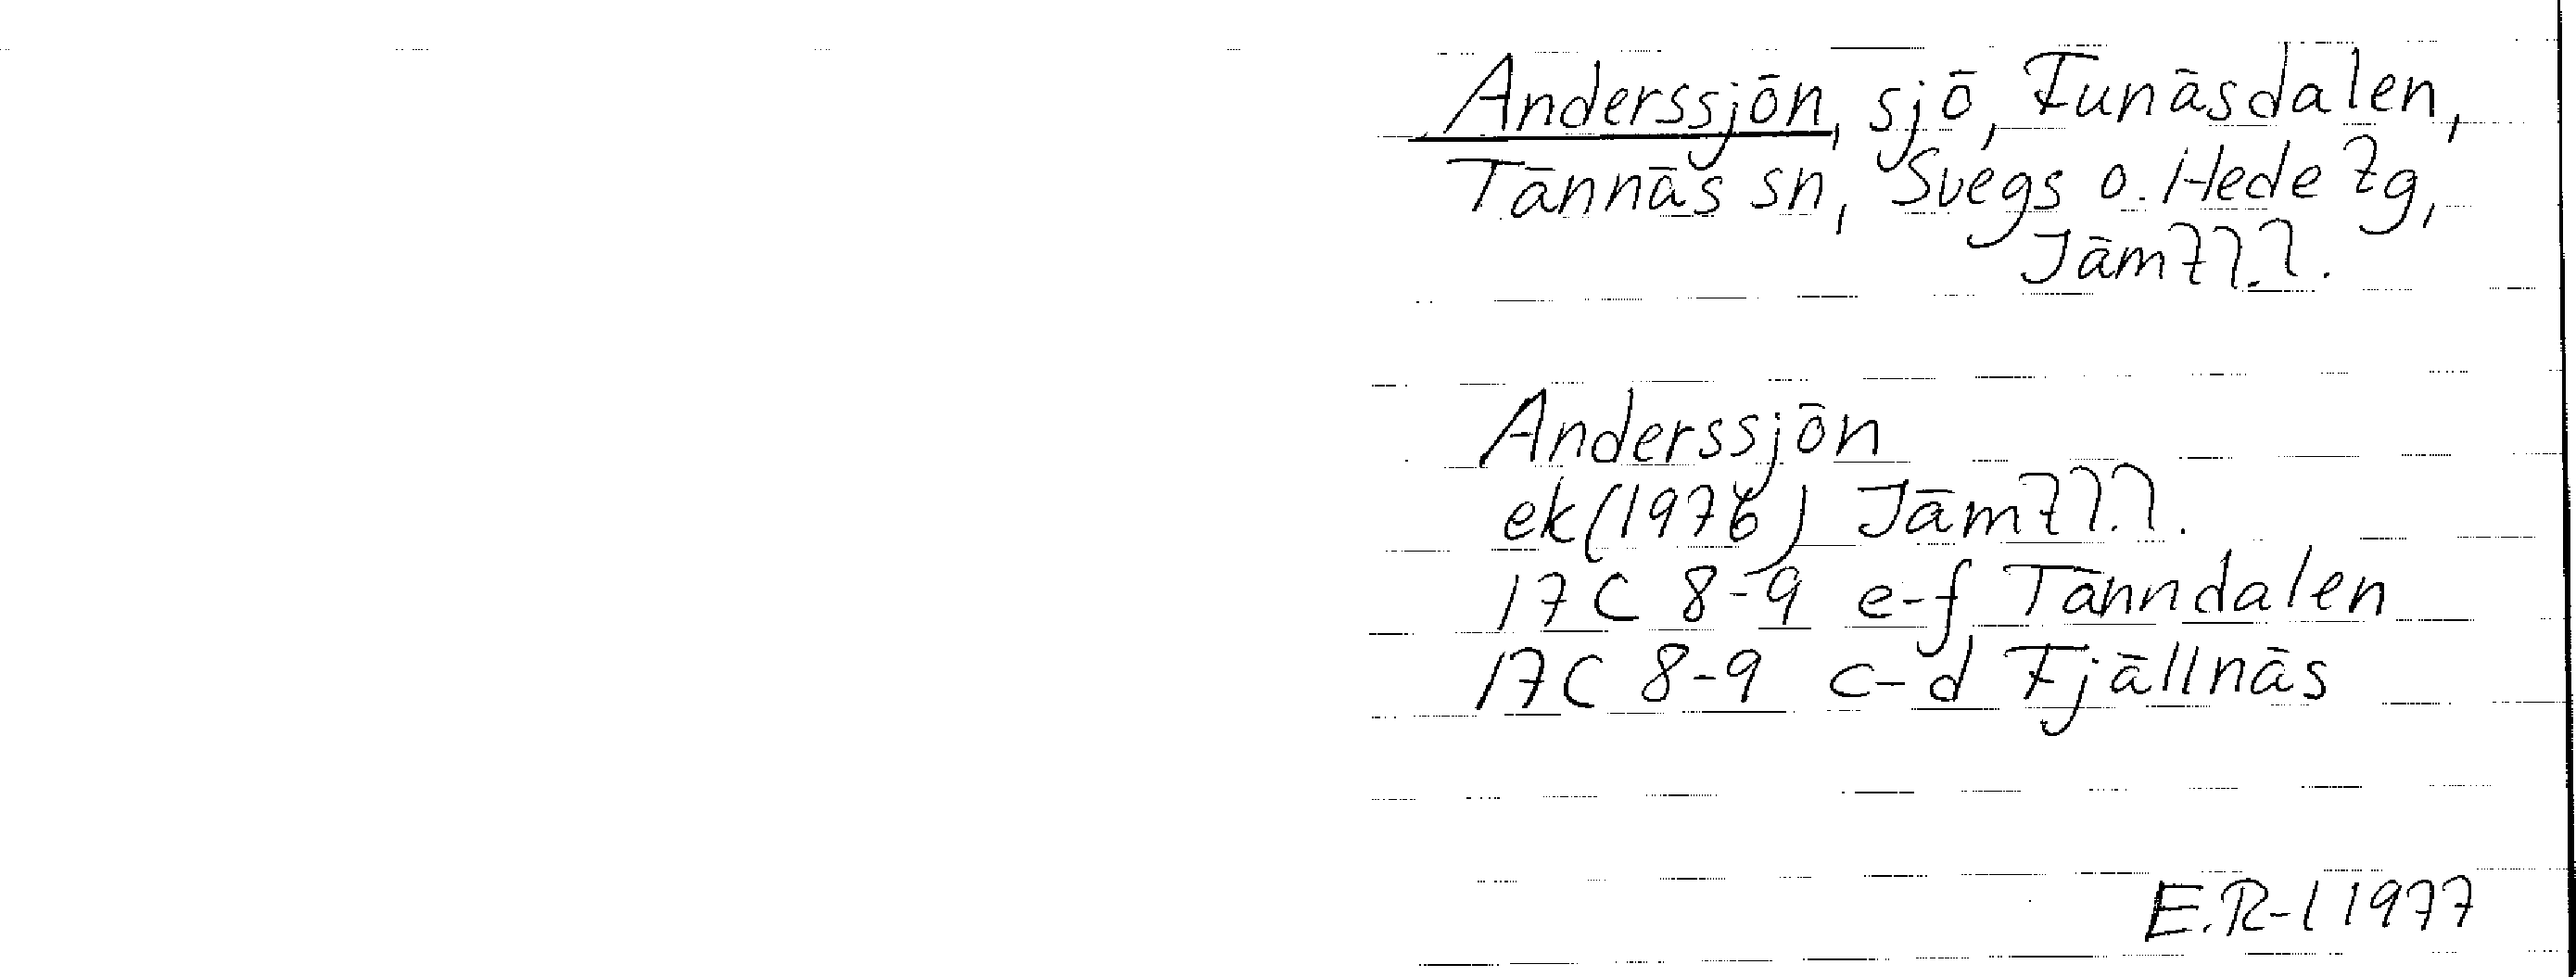 Anderssjön, sjö, Funäsdalen,
Tännäs sn, Svegs o. Hede tg,
Jämtl.l.
Anderssjön
ek (1976) Jämtl.l.
17C 8-9 e-f Tänndalen
17C 8-9 c-d Fjällnäs
E.R-l 1977